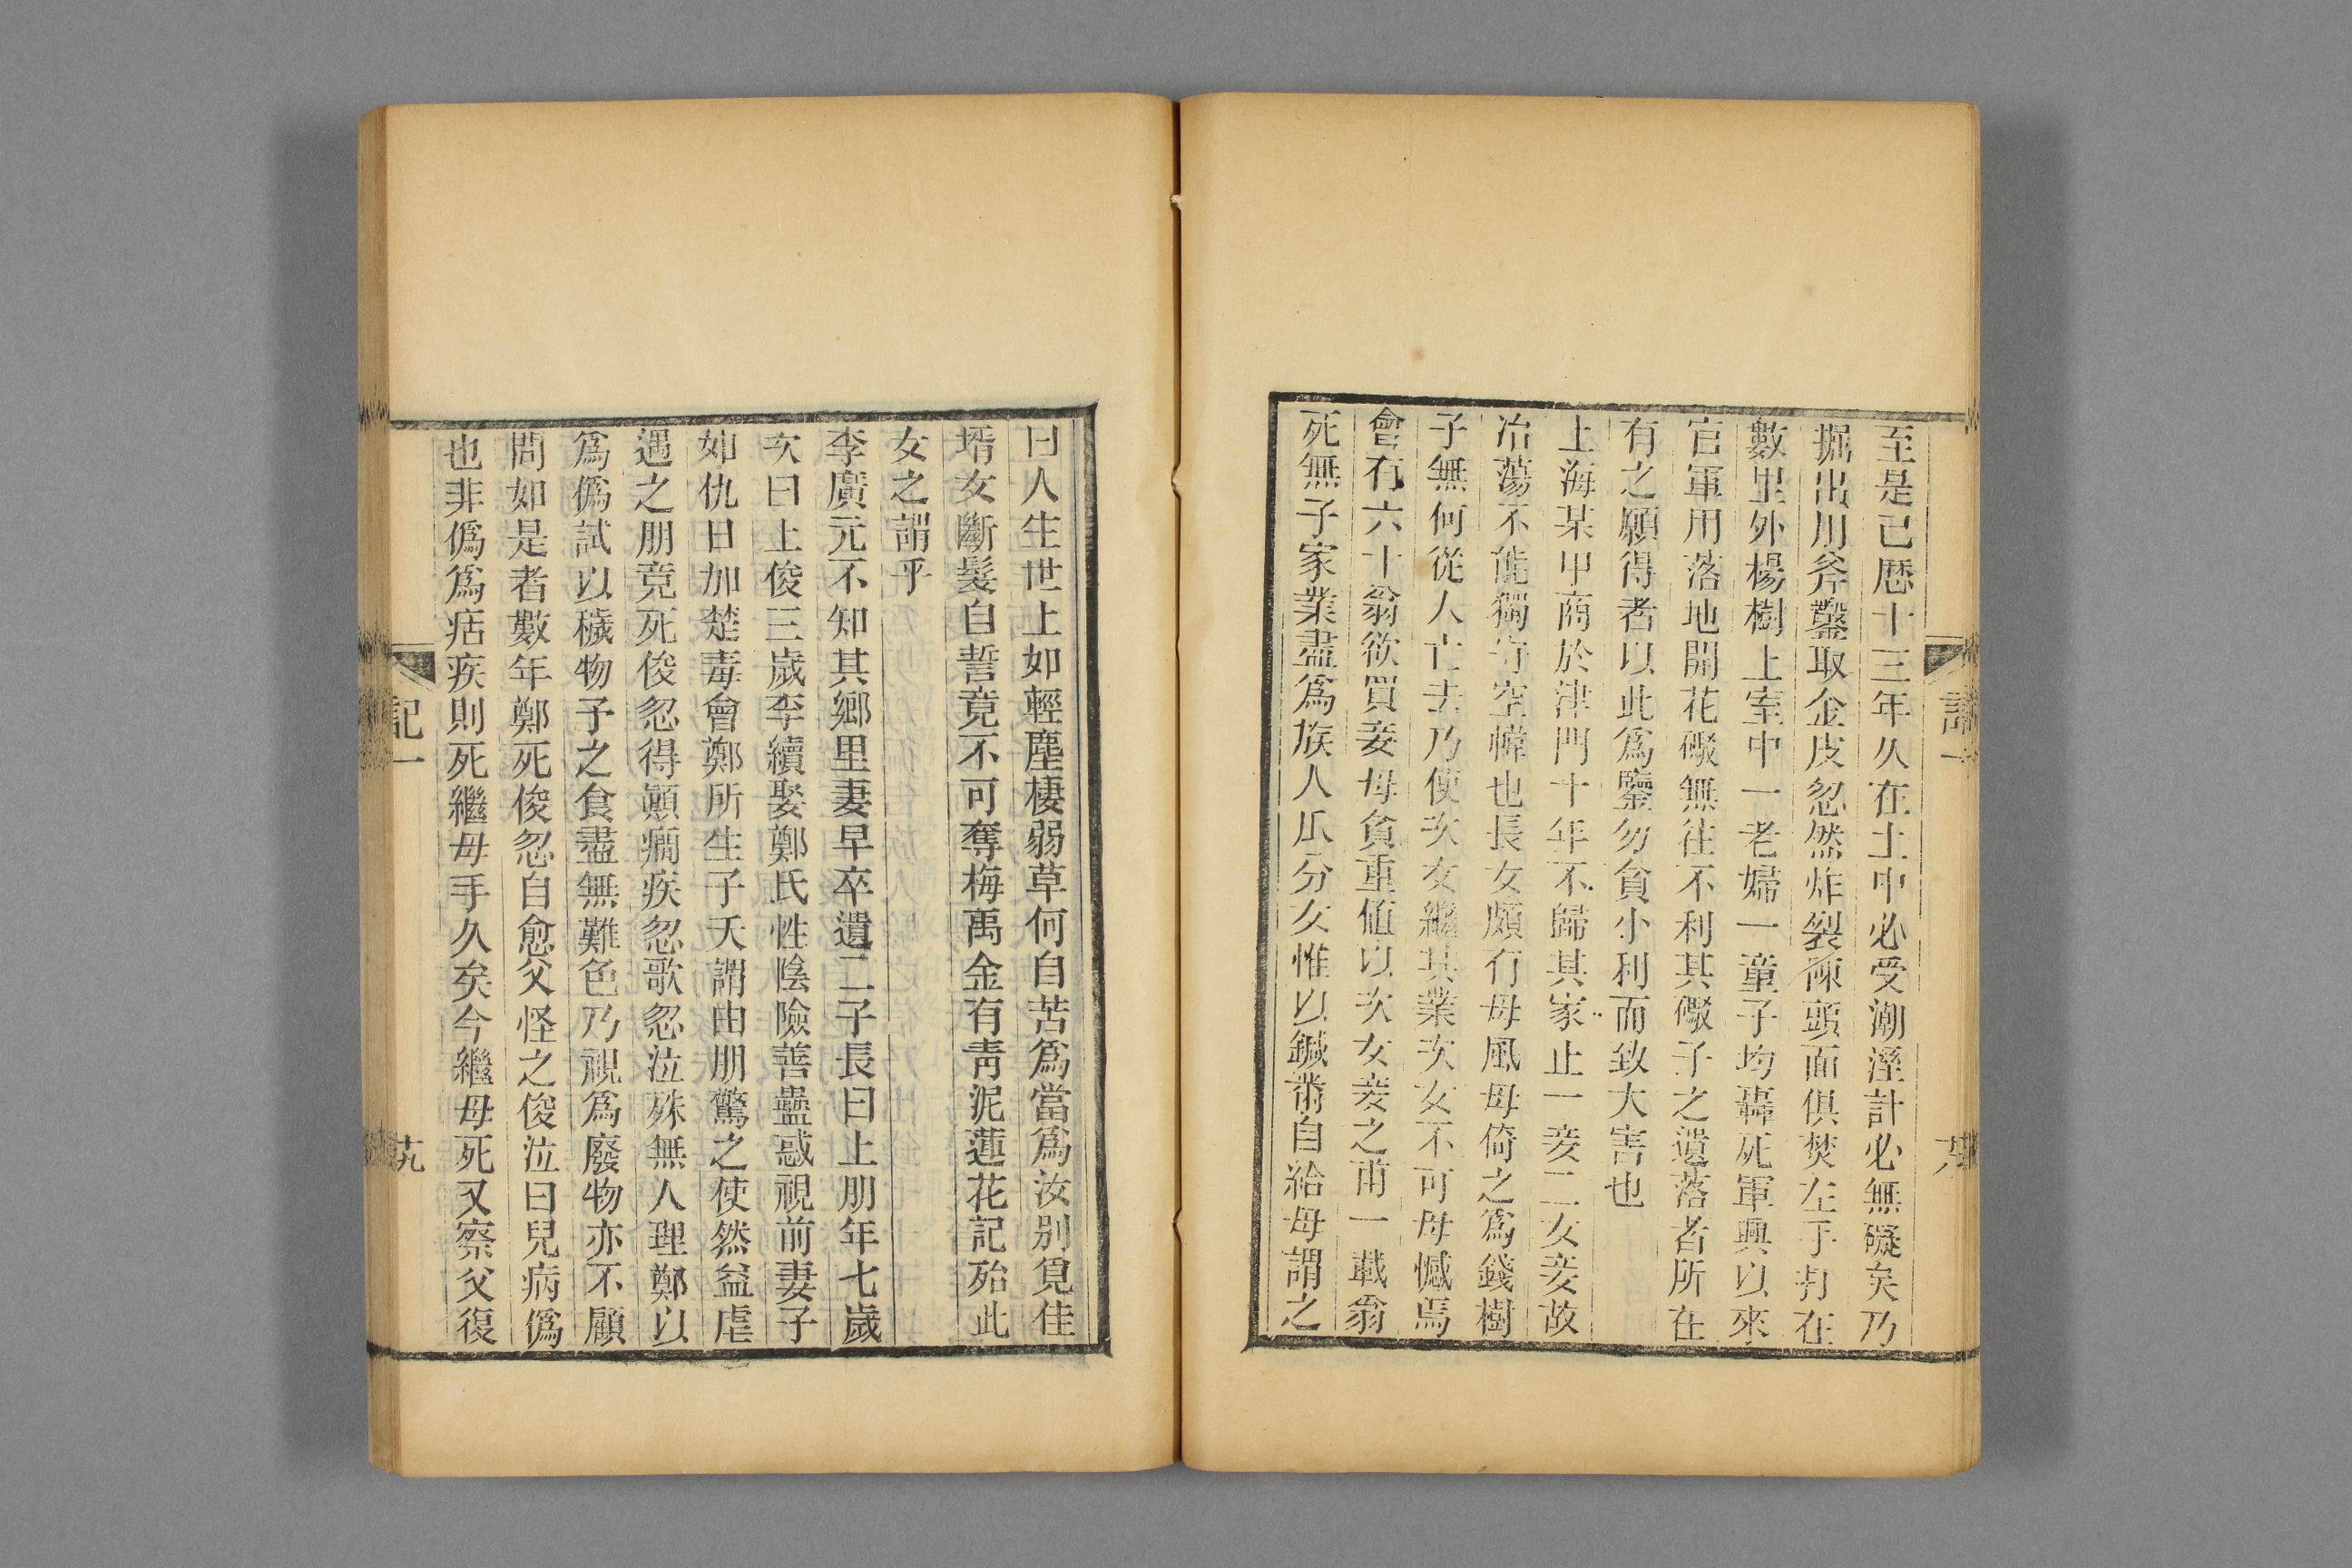 至是已歷十三年久在土中必受潮溼計必無礙矣乃
掘出用斧鑿取金皮忽然炸裂陳頭面俱焚左手打在
數里外楊樹上室中一老婦一童子均轟死軍興以來
官軍用落地開花礮無往不利其礮子之遺落者所在
有之願得者以此為鑒勿貪小利而致大害也
上海某甲商於津門十年不歸其家止一妾二女妾故
冶蕩不能獨守空幃也長女頗有母風母倚之為錢樹
子無何從人亡去乃使次女繼其業次女不可母憾焉
會有六十翁欲買妾母貪重值以次女妾之甫一載翁
死無子家業盡為族人瓜分女惟以鍼黹自給母謂之
曰人生世上如輕塵棲弱草何自苦為當為汝別覓佳
壻女斷髮自誓竟不可奪梅禹金有青泥蓮花記殆此
女之謂乎
李廣元不知其鄉里妻早卒遺二子長曰上朋年七歲
次曰上俊三歲李續娶鄭氏性陰險善蠱惑視前妻子
如仇日加楚毒會鄭所生子夭謂由朋驚之使然益虐
遇之朋竟死俊忽得顛癇疾忽歌忽泣殊無人理鄭以
為偽試以穢物予之食盡無難色乃視為廢物亦不顧
問如是者數年鄭死俊忽自愈父怪之俊泣曰兒病偽
也非偽為痁疾則死繼母手久矣今繼母死又察父復
記一
十九